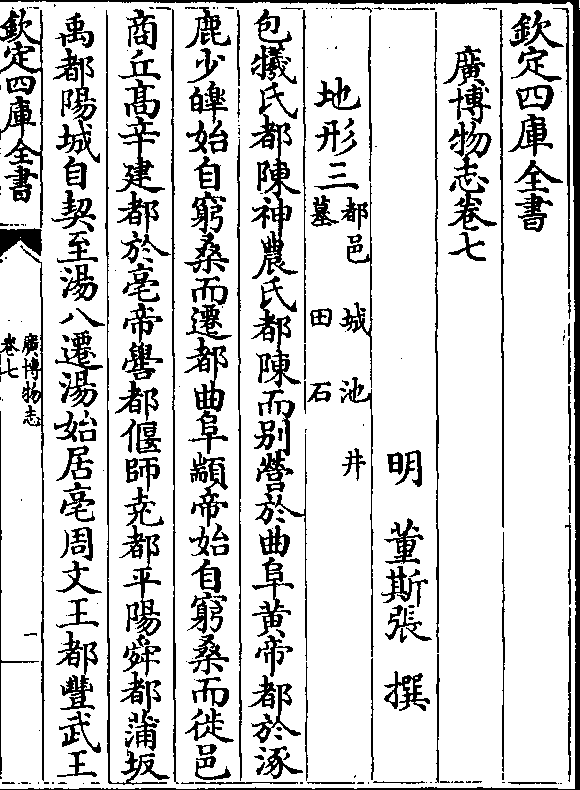 欽定四庫全書
廣博物志卷七
明 董斯張 撰
地形三
都邑 城池 井
墓 田 石
包犧氏都陳神農氏都陳而别營於曲阜黄帝都於涿
鹿少皥始自窮桑而遷都曲阜顓帝始自窮桑而徙邑
商丘髙辛建都於亳帝嚳都偃師堯都平陽舜都蒲坂
禹都陽城自契至湯八遷湯始居亳周文王都豐武王
欽定四庫全書
廣博物志
卷七
一